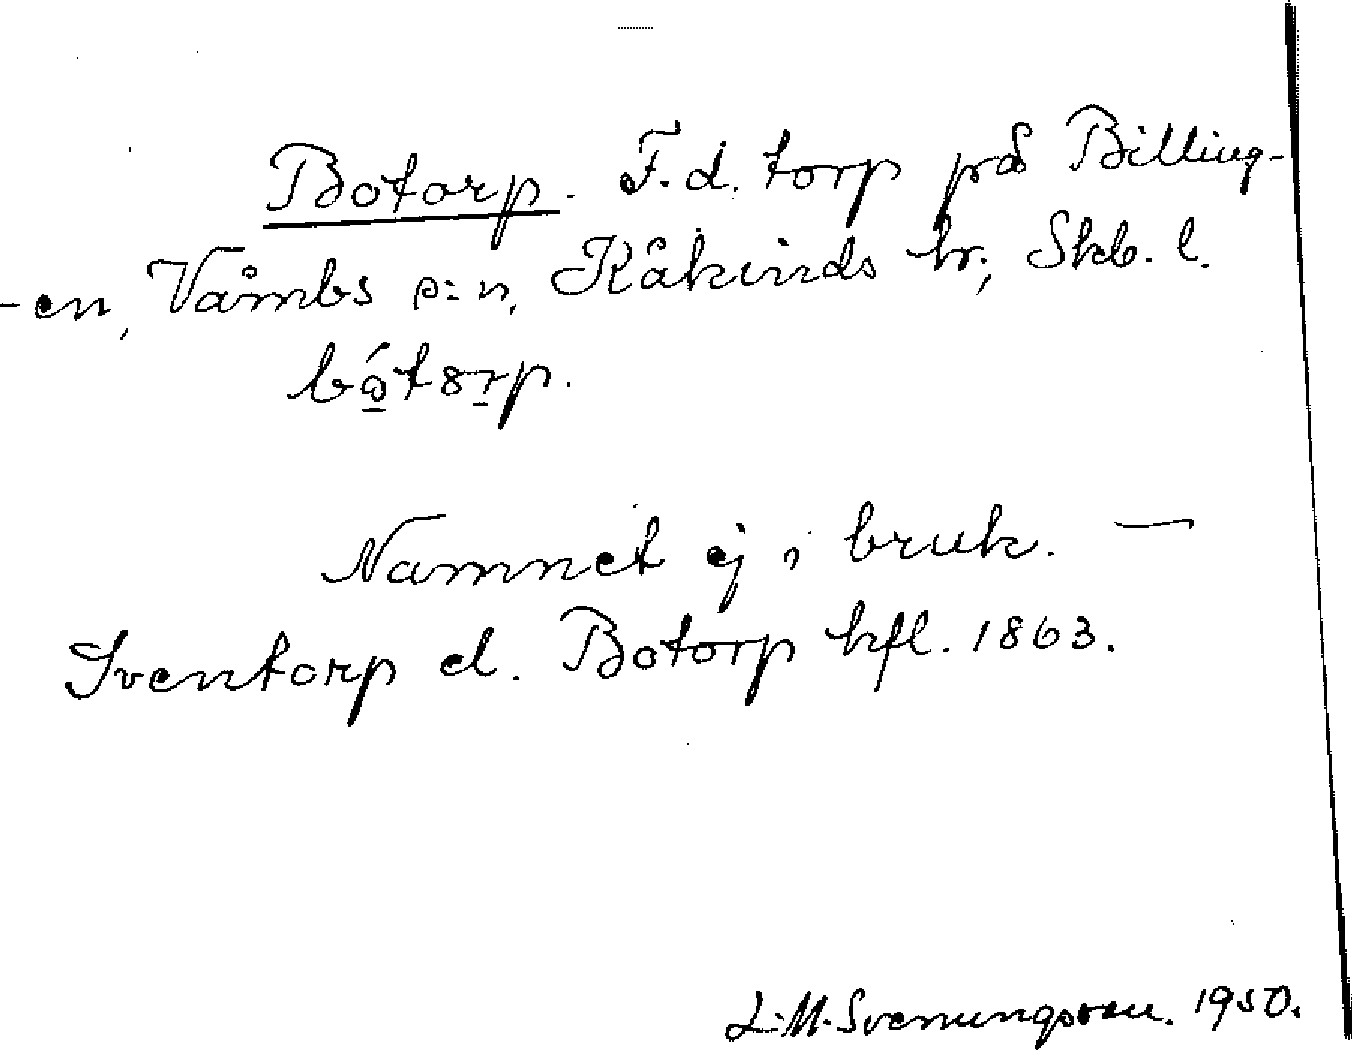 Botorp. F.d. torp på Billing-
-en, Våmbs s:n, Kåkinds hr., Skb. l.
bó̱t8ṟp.
Namnet ej i bruk. —
Sventorp el. Botorp hfl. 1863.
L.M. Svenungsson. 1950.